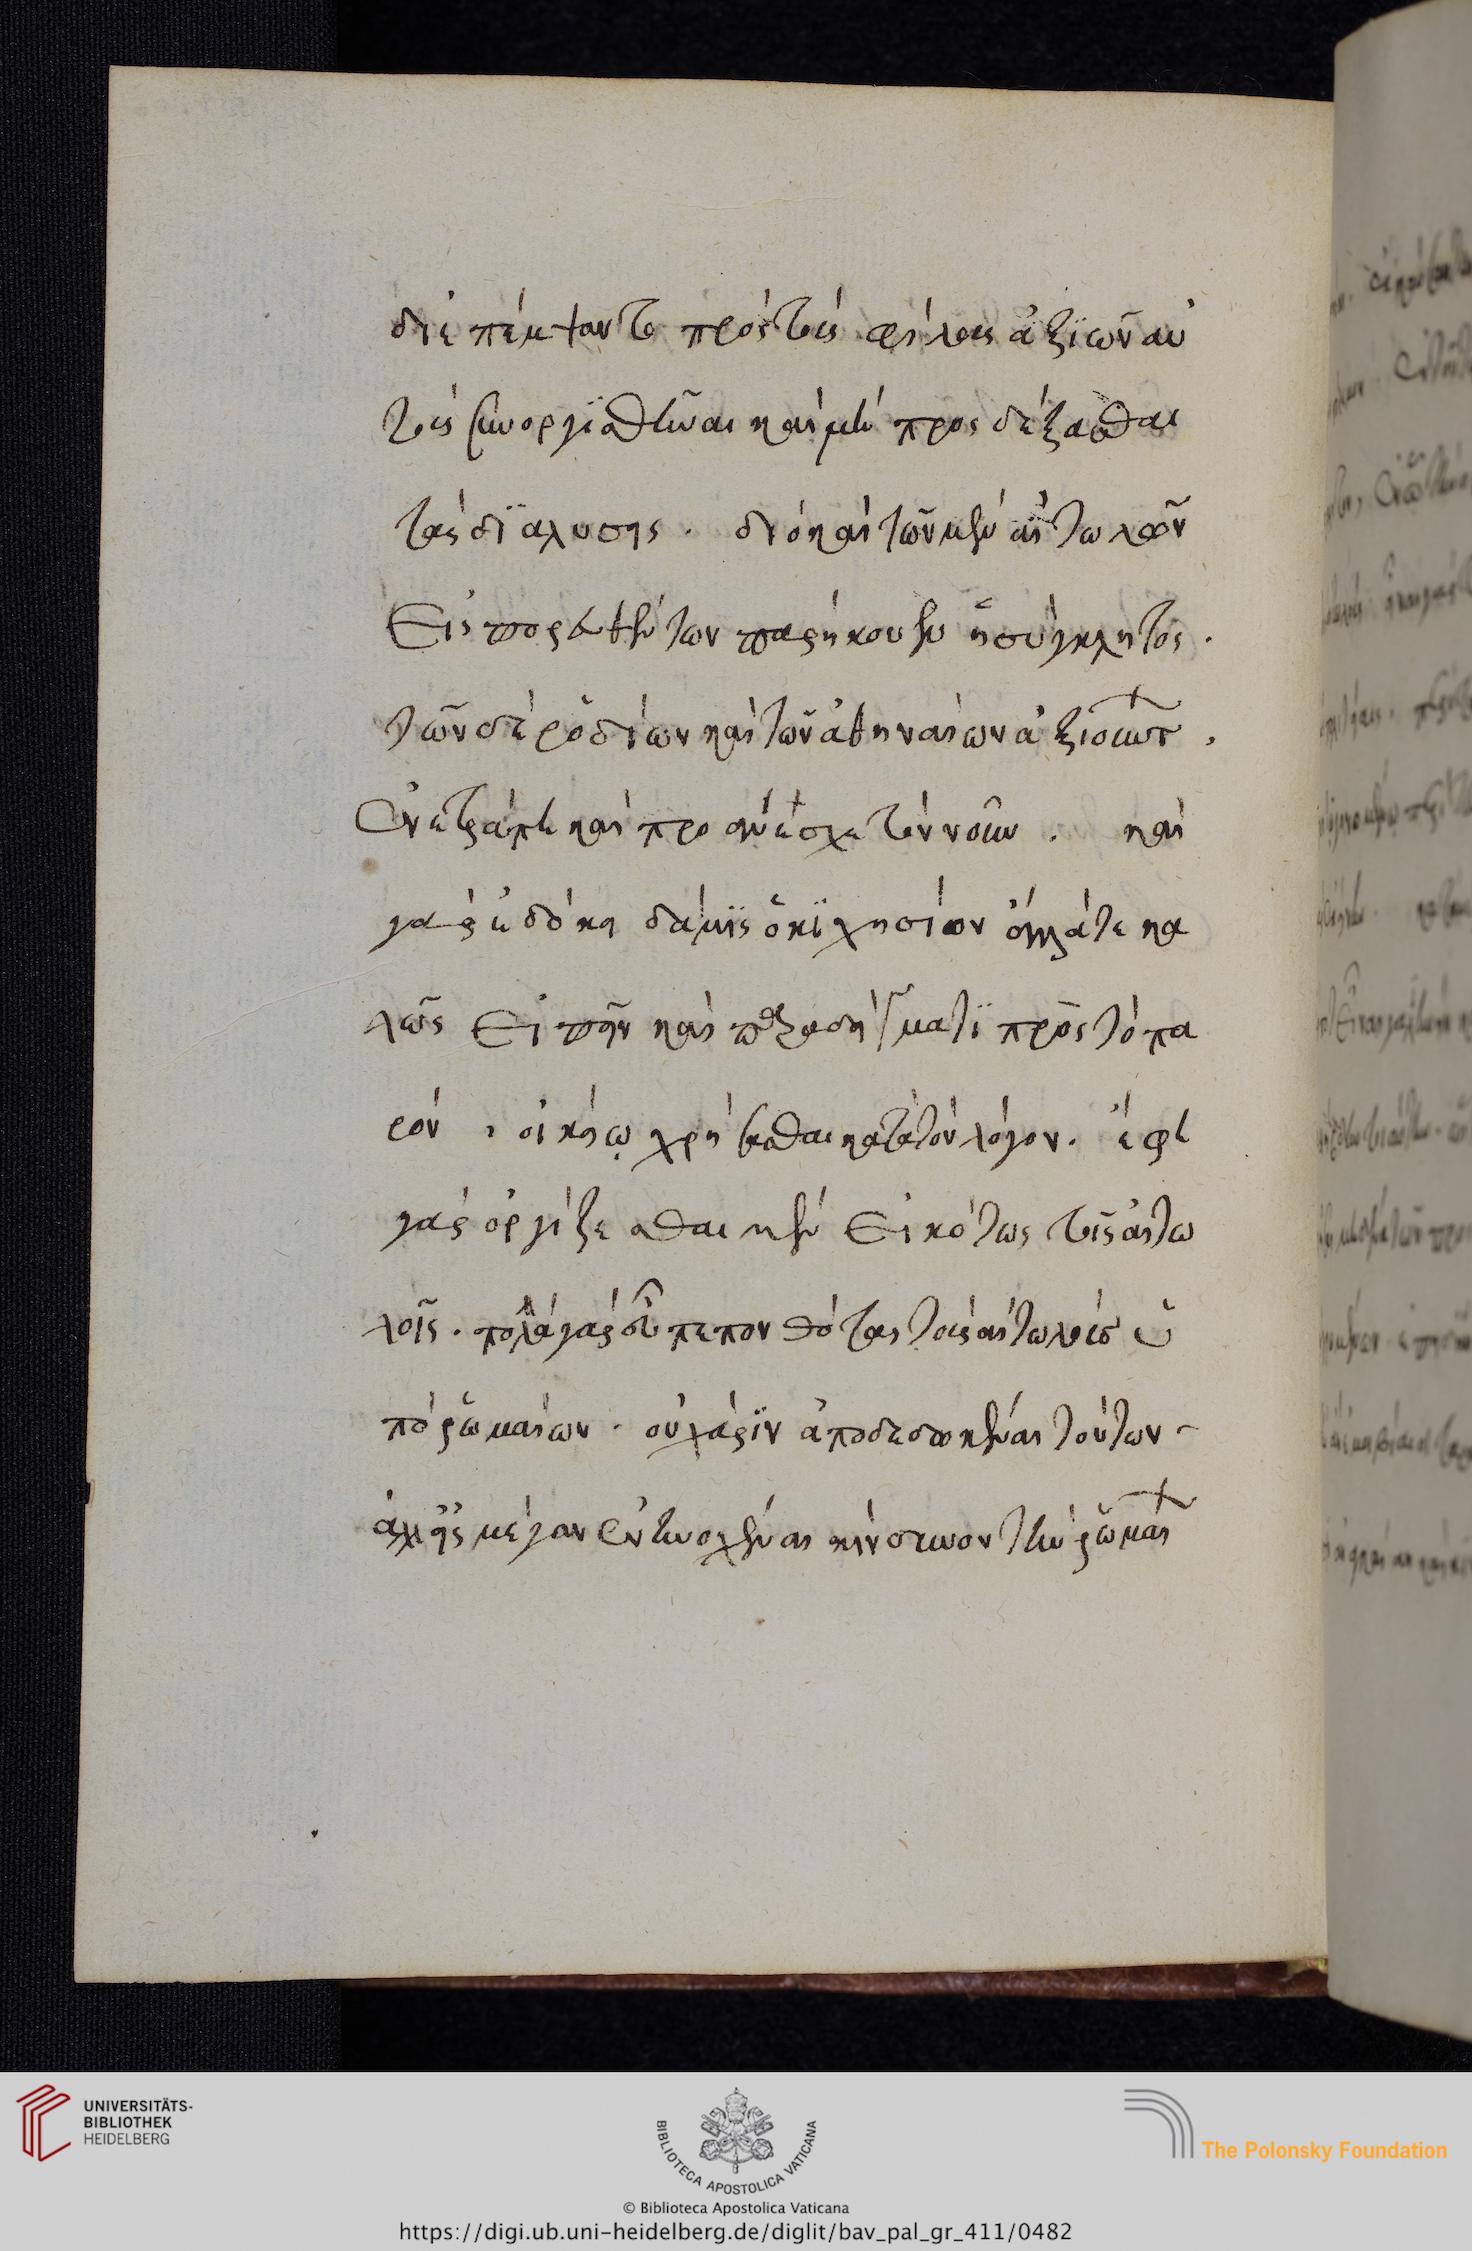 διεπέμψαντο πρὸς τοὺς φίλους ἀξιῶν αὐ
τοῖς συνοργϊσθῆναι καὶ μὴ προσδέξασθαι
τὰς δϊαλύσης. διὸ καὶ τῶν μὲν αἰτωλῶν
εἰσπορευθέντων παρήκουεν ἡ σύγκλητος.
τῶν δὲ ῥοδίων καὶ τῶν ἀθηναίων ἀξιούντ,
ἐνετράπη καὶ προσανέσχε τὸν νοῦν. καὶ
γὰρ ἐδόκει δάμϊς ὁ κϊχησίων ἄλλά τε κα
λῶς εἰπεῖν καὶ παραδείγματϊ πρὸς τὸ πα
ρὸν, οἰκείῳ χρήσασθαι κατὰ τὸν λόγον. ἔφη
γὰρ ὀργίζεσθαι μὲν εἰκότως τοῖς αἰτω
λοῖς. πολλὰ γὰρ εὖ πεπονθότας τοὺς αἰτωλοὺς ὑ
πὸ ῥωμαίων. οὐ χάρϊν ἀποδεδωκέναι τούτων
ἀλλ' εἰς μέγαν ἐνηνοχέναι κίνδυνον τὴν ῥωμαί
UNIVERSITÄTS-
BIBLIOTHEK
HEIDELBERG
BIBLIOTECA APOSTOLICA VATICANA
© Biblioteca Apostolica Vaticana
The Polonsky Foundation
https://digi.ub.uni-heidelberg.de/diglit/bav_pal_gr_411/0482